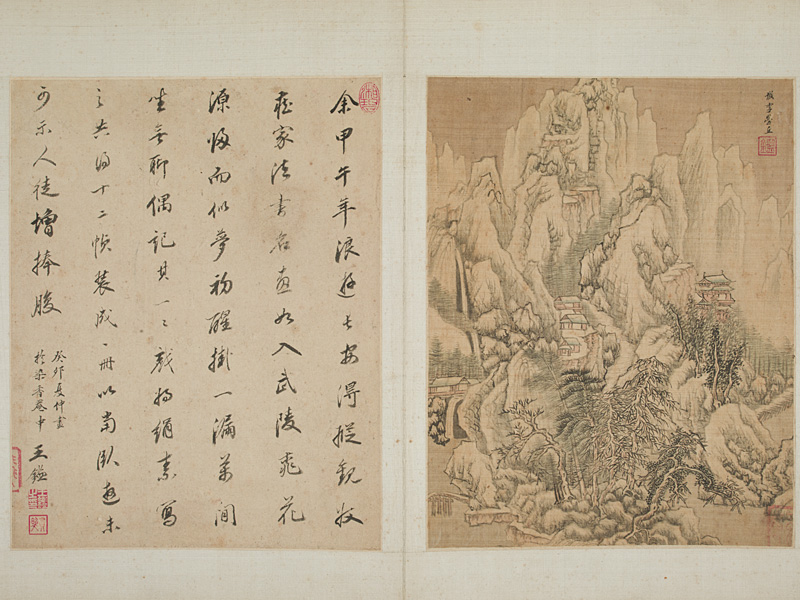 李營丘
余甲午年浪遊長安得縱觀收
藏家法書名畫如入武陵桃花
源歸而似夢初醒掛一漏萬閒
坐無聊偶記其一二戲將絹素寫
之共得十二幀裝成一冊以當臥遊未
可示人徒增捧腹
癸卯夏仲畫
於染香菴中
王鑑